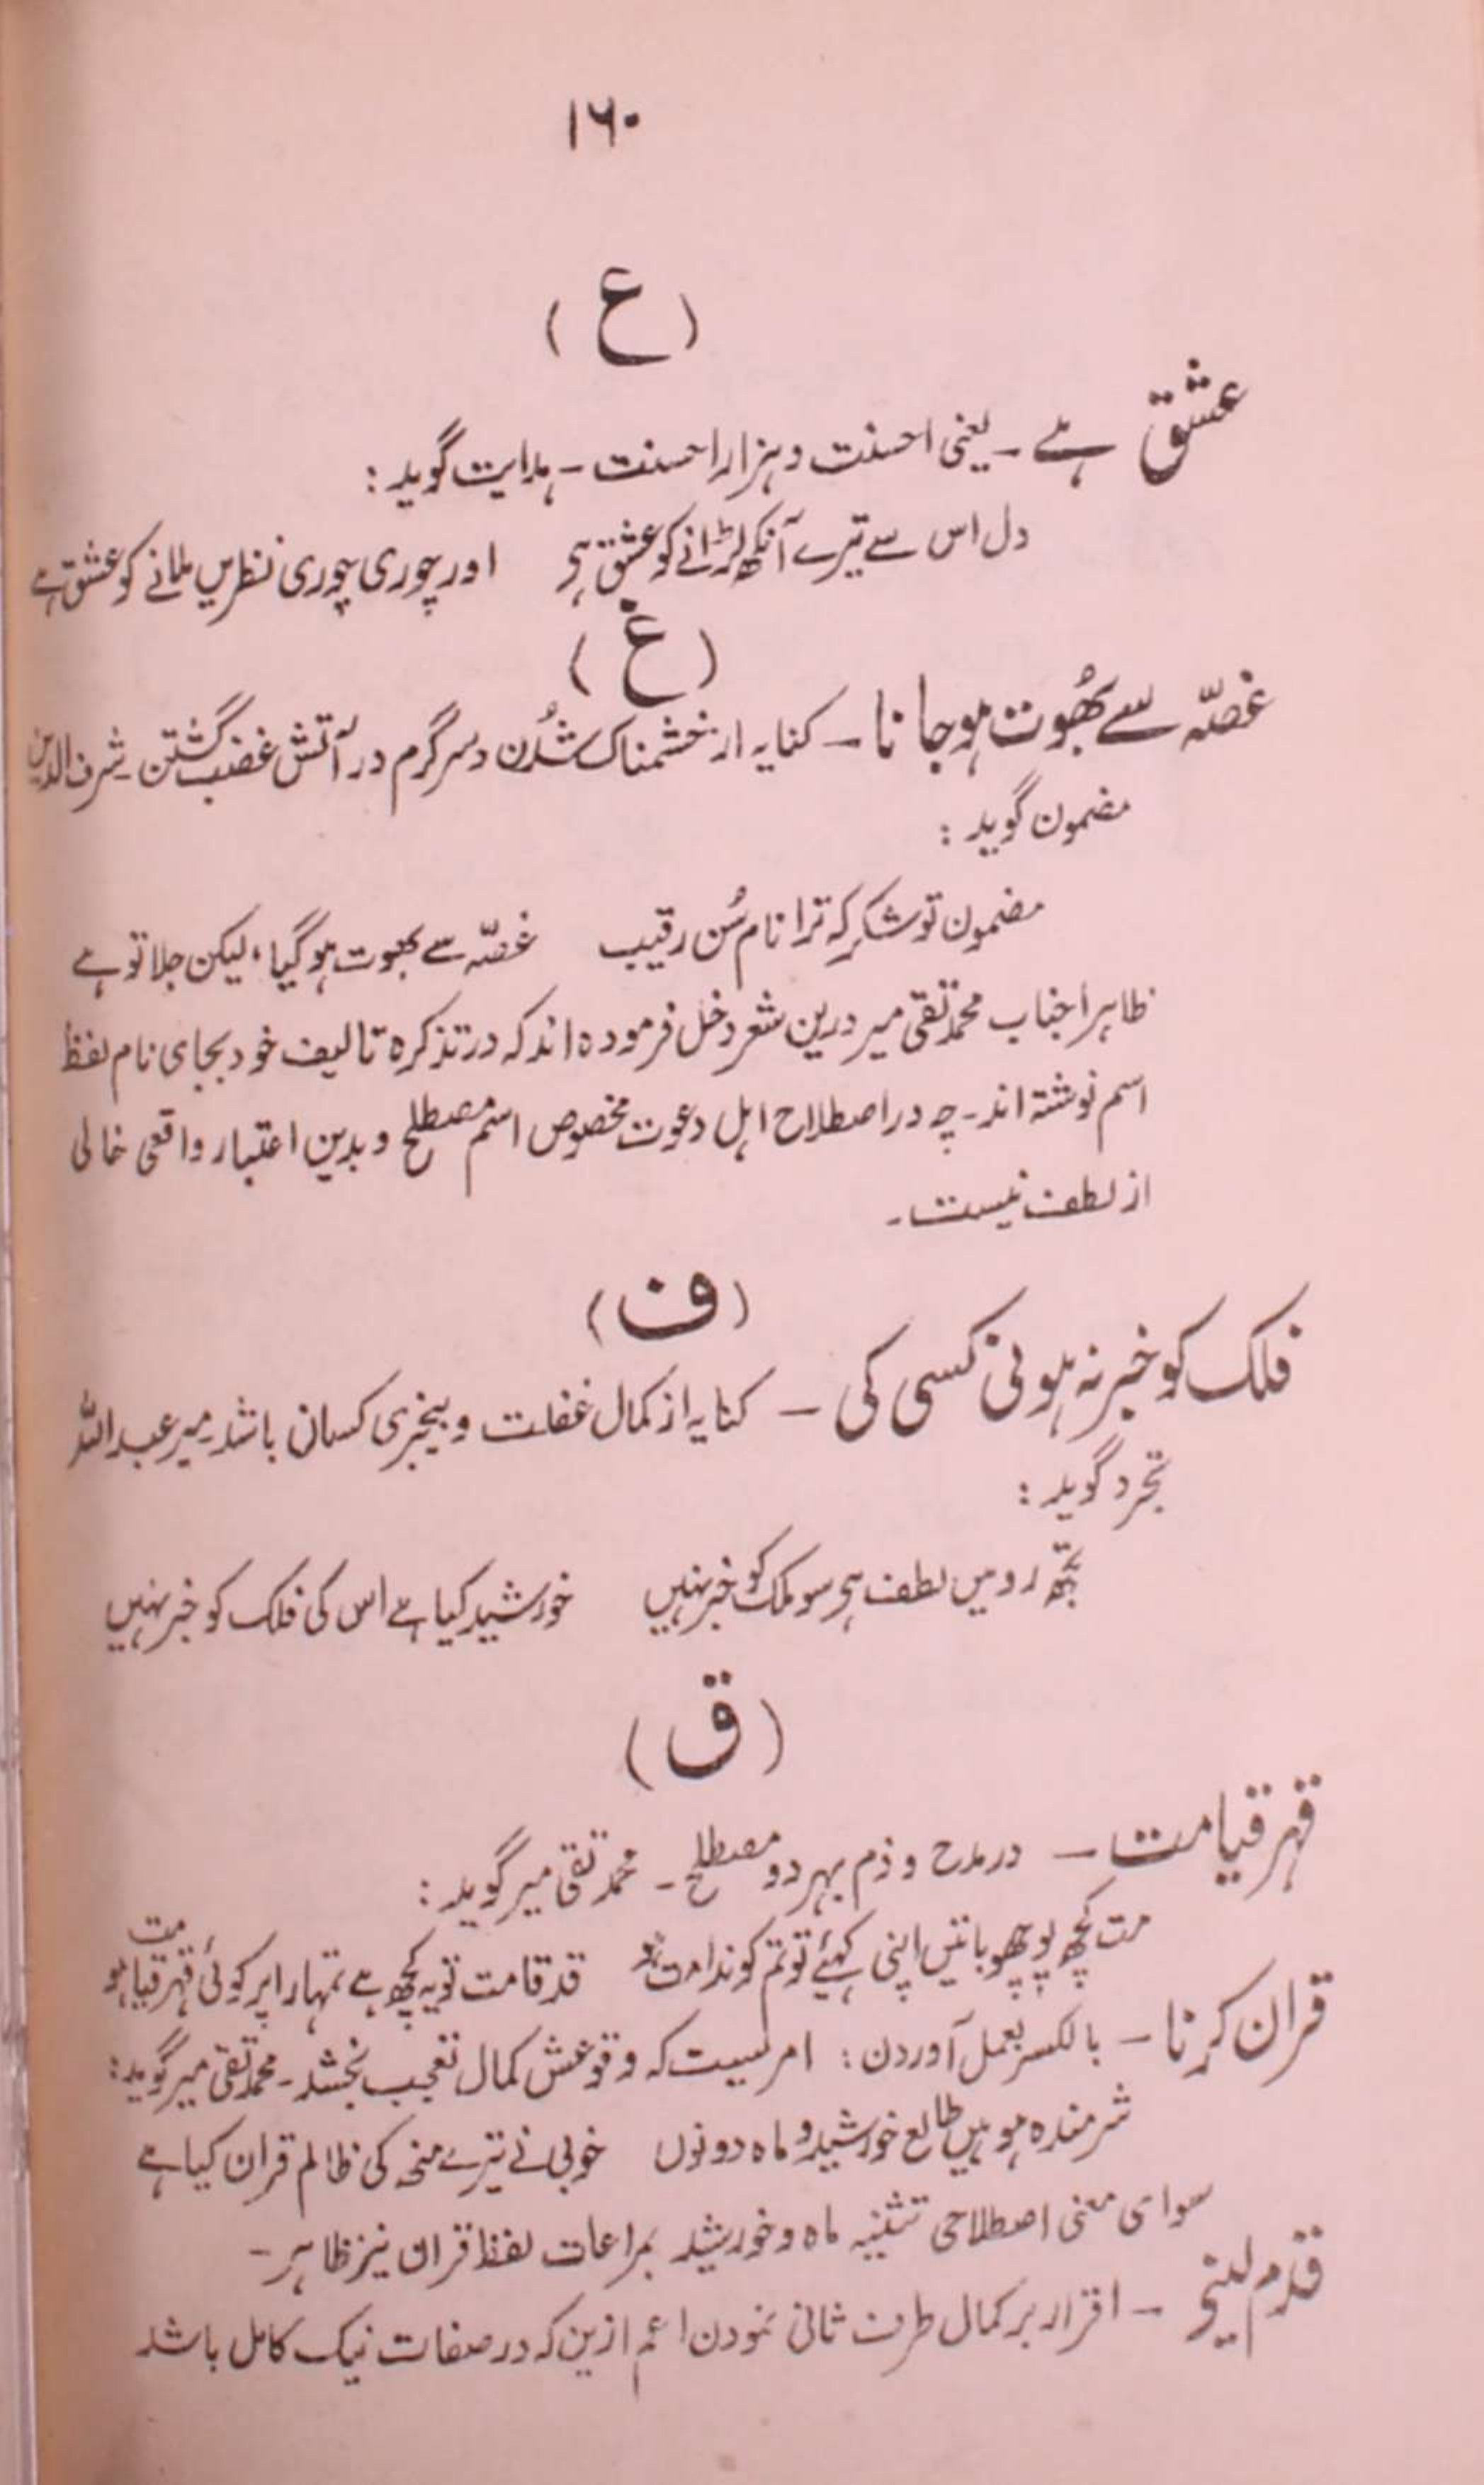 ۱۶۰
(ع)
عشق ہے ۔ یعنی احسنت و ہزار احسنت ۔ ہدایت گوید :
دل اس سے تیرے آنکھ لڑانے کو عشق ہی اور چوری چوری نظریں ملانے کو عشق ہے
(غ)
غصّہ سے بھُوت ہو جانا ۔ کنایہ از خشمناک شُدن و سرگرم در آتش غضب گشتن ۔ شرف الدین
مضمون گوید :
مضمون تو شکر کر کہ ترا نام سُن رقیب غصّہ سے بھوت ہو گیا، لیکن جلا تو ہے
ظاہراً جناب محمد تقی میر درین شعر دخل فرمودہ اند کہ در تذکرہ تالیف خود بجای نام لفظ
اسم نوشتہ اند ۔ چہ در اصطلاح اہل دعوت مخصوص اسم مصطلح و بدین اعتبار واقعی خالی
از لطف نیست ۔
(ف)
فلک کو خبر نہ ہونی کسی کی ۔ کنایہ از کمال غفلت و بیخبری کسان باشد میر عبد اللہ
تجرد گوید :
تجھ رو میں لطف ہی سو ملک کو خبر نہیں خورشید کیا ہے اس کی فلک کو خبر نہیں
(ق)
قہر قیامت ۔ در مدح و ذم بہر دو مصطلح ۔ محمد تقی میر گوید :
مت کچھ پوچھو باتیں اپنی کہئے تو تم کو ندامت ہو قد قامت تو یہ کچھ ہے تمہارا پر کوئی قہر قیامت ہو
قران کرنا ۔ بالکسر بعمل آوردن : امریست کہ وقوعش کمال تعجب بخشد ۔ محمد تقی میر گوید :
شرمندہ ہو ہیں طالع خورشید و ماہ دونوں خوبی نے تیرے منہ کی ظالم قران کیا ہے
سوای معنی اصطلاحی تثنیہ ماہ و خورشید بمراعات لفظ قران نیز ظاہر ۔
قدم لینے ۔ اقرار بر کمال طرف ثانی نمودن اعم ازین کہ در صفات نیک کامل باشد